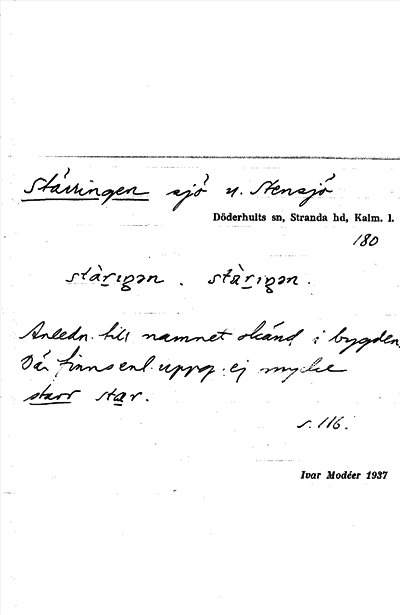 Starringen sjö v. Stensjö
Döderhults sn, Stranda hd, Kalm. l.
180
stàrıŋən . stàrıŋən .
Anledn. till namnet okänd i bygden.
Där finns enl. uppg. ej mycke
starr star.
s. 116.
Ivar Modéer 1937